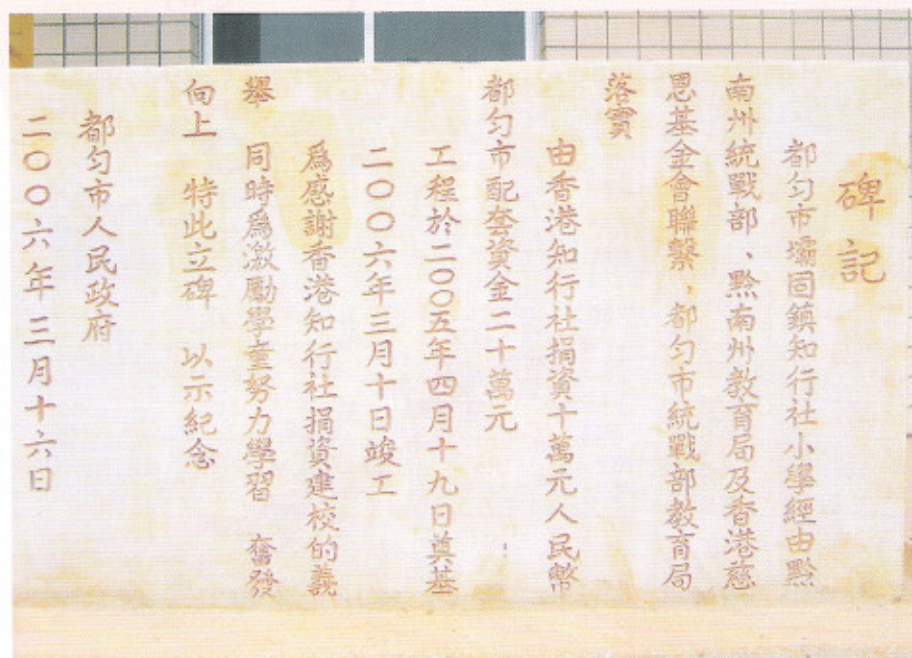 碑記
都匀市壩固鎮知行社小學經由黔
南州統戰部、黔南州教育局及香港慈
恩基金會聯繫,都匀市統戰部教育局
落實
由香港知行社捐資十萬元人民幣
都匀市配套資金二十萬元
工程於二〇〇五年四月十九日奠基
二〇〇六年三月十日竣工
爲感謝香港知行社捐資建校的義
舉 同時爲激勵學童努力學習 奮發
向上 特此立碑 以示紀念
都匀市人民政府
二〇〇六年三月十六日